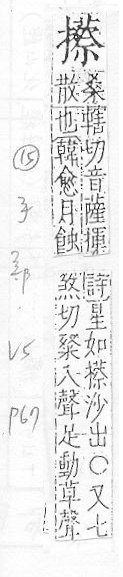 摖
桑轄切音薩揮
散也韓愈月蝕
詩星如摖沙出○又七
煞切粲入聲足動草聲
⑮ 子部. V5 P67